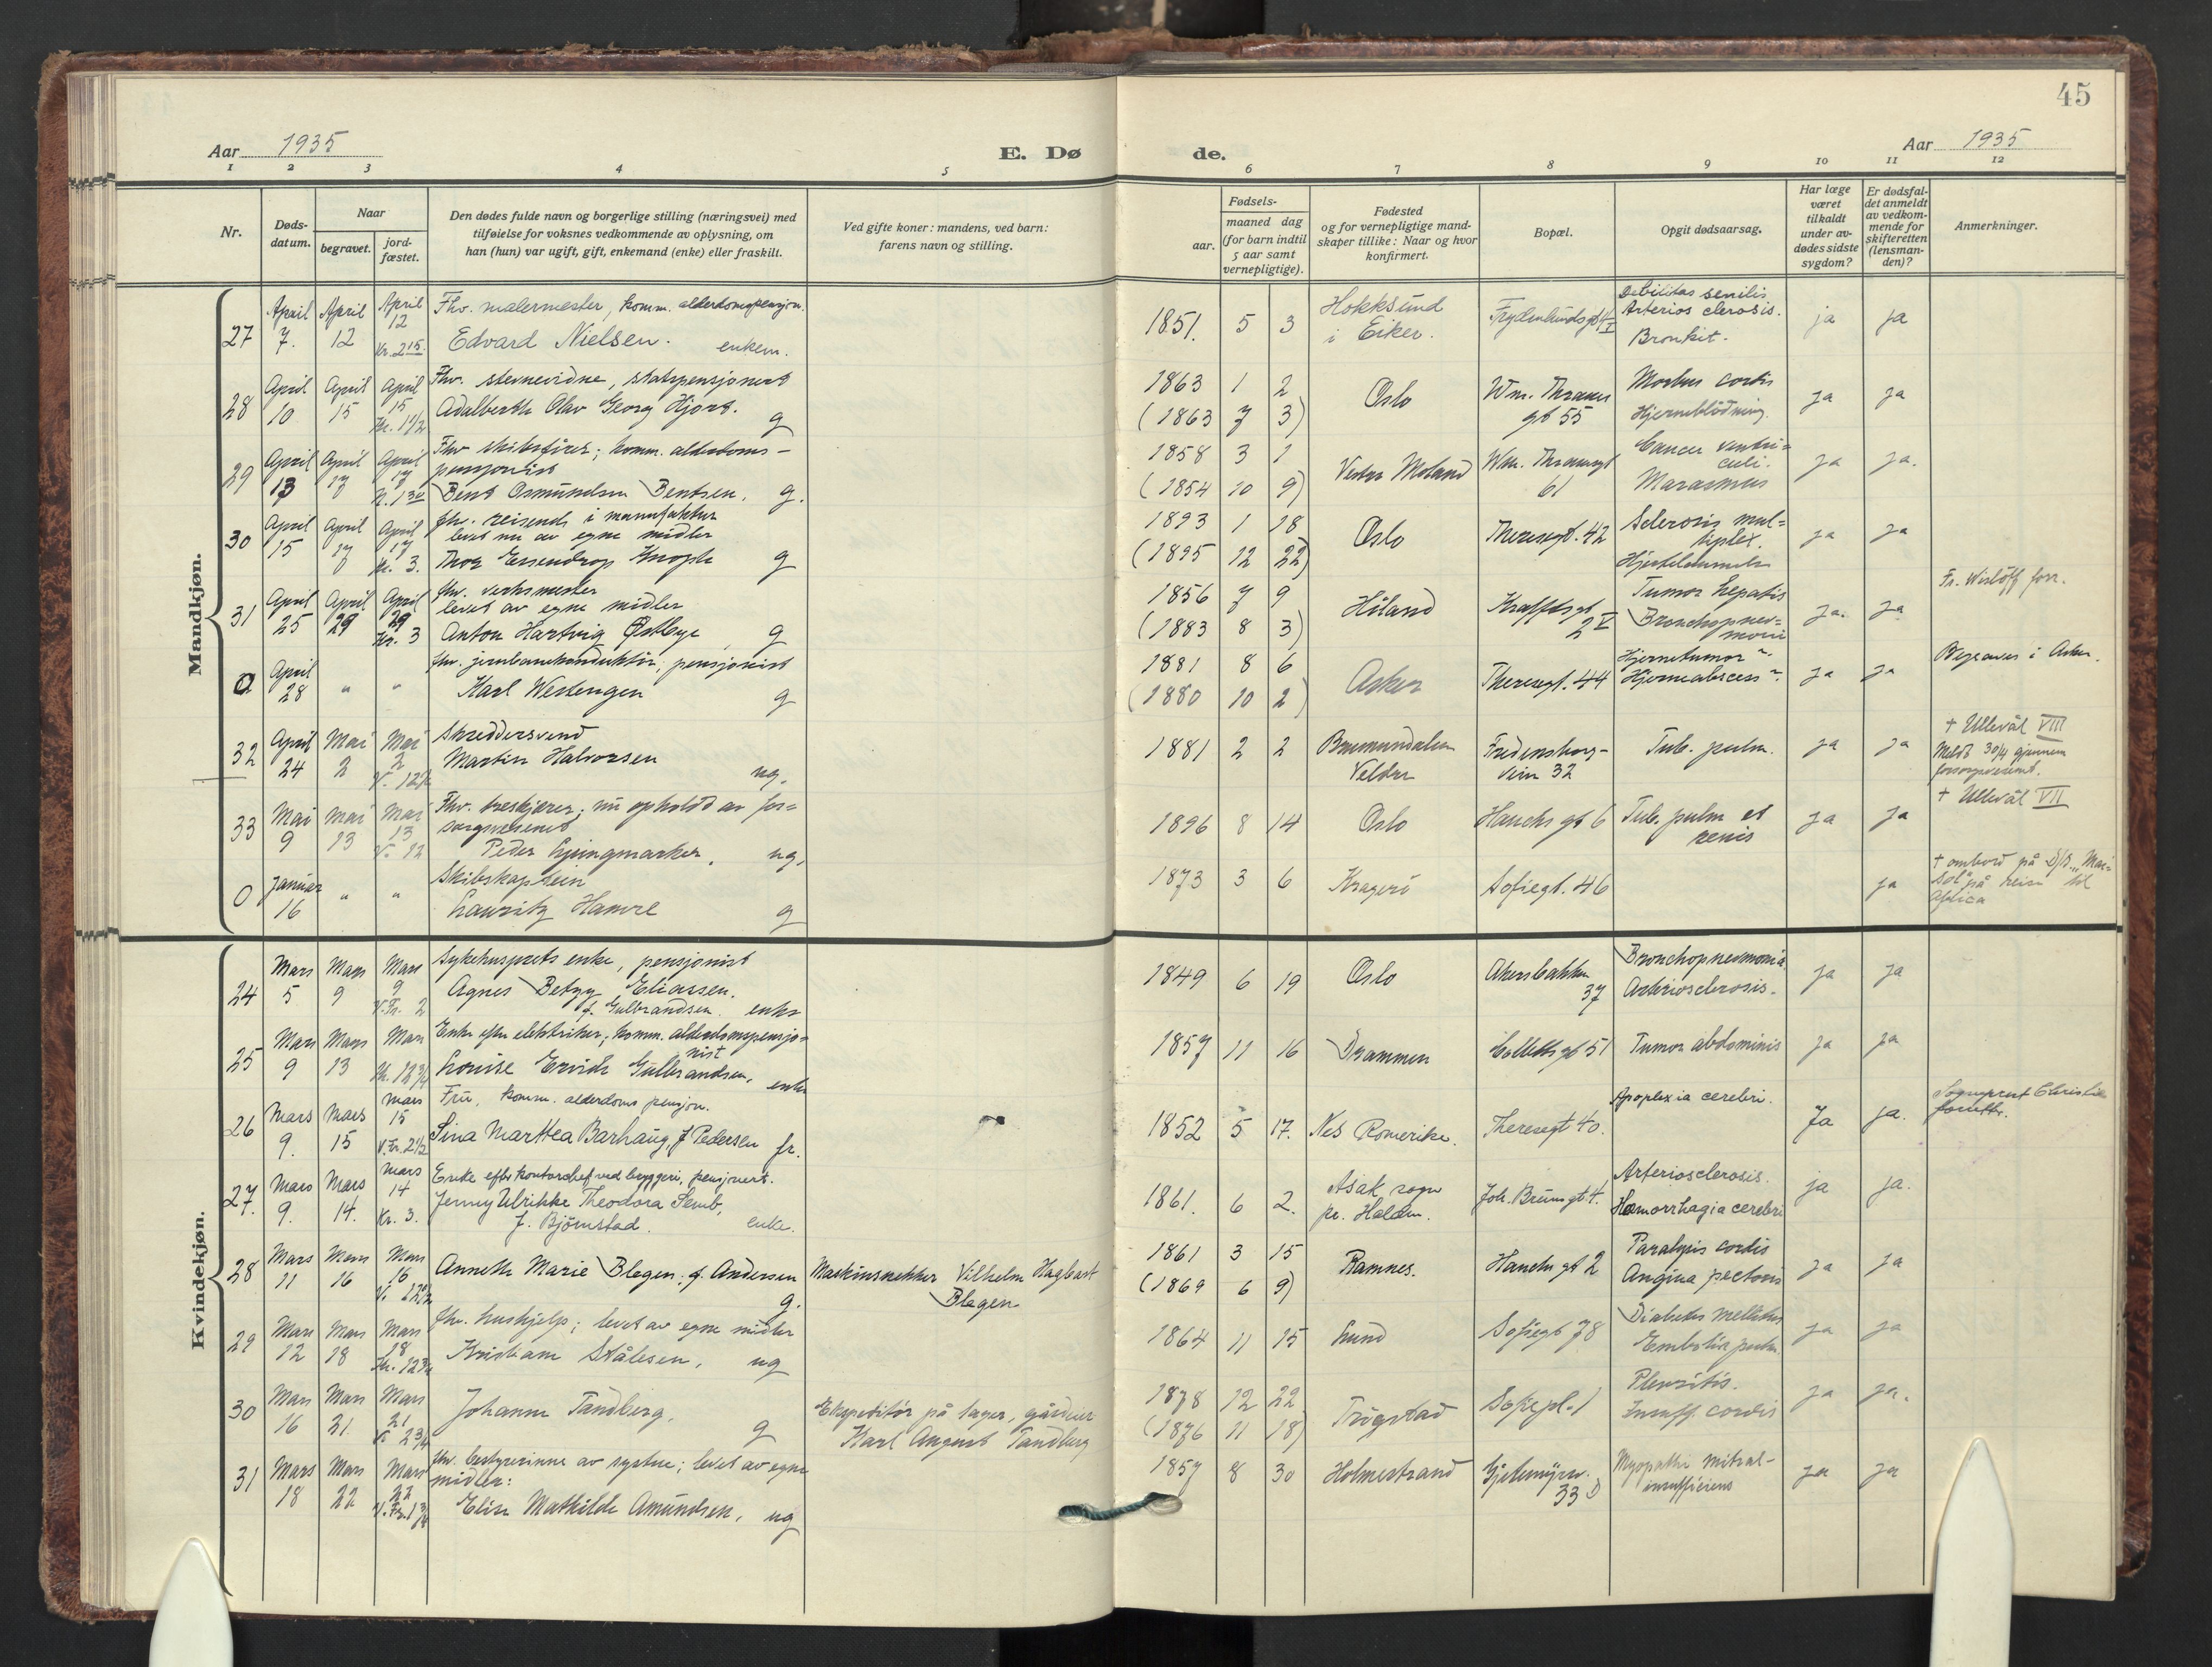 45
Aar 1935
E. Dø
de.
Aar 1935
1 2 3 4 5 6 7 8 9 10 11 12
Nr.
Døds-
datum.
Naar
begravet.
jord-
fæstet.
Den dødes fulde navn og borgerlige stilling (næringsvei) med
tilføielse for voksnes vedkommende av oplysning, om
han (hun) var ugift, gift, enkemand (enke) eller fraskilt.
Ved gifte koner: mandens, ved barn:
farens navn og stilling.
Fødsels-
aar.
maaned dag
(for barn indtil
5 aar samt
vernepligtige).
Fødested
og for vernepligtige mand-
skaper tillike: Naar og hvor
konfirmert.
Bopæl.
Opgit dødsaarsag.
Har læge
været
tilkaldt
under av-
dødes sidste
sygdom?
Er dødsfal-
det anmeldt
av vedkom-
mende for
skifteretten
(lensman-
den)?
Anmerkninger.
Mandkjøn.
27 April 7. April 12 April 12 Kr. 2 15
Fhv. malermester, komm. alderdomspensjon.
Edvard Nielsen. enkem.
1851. 5 3 Hokksund i Eiker.
Debilitas senilis
Arterios clerosis.
Bronkit.
ja ja
28 April 10 April 15 April 15 Kr. 1 1/2
Fhv. stevnevidne, statspensjonert
Adalberth Olav Georg Hjort. g
1863 1 2
(1863 7 3)
Oslo
Wm. Thranes gt 55
Morbus cordis
Hjerneblödning.
ja ja
29 April 13 April 17 April 17 K. 1 30
Fhv skibsförer; komm. alderdoms-
pensjonist
Bent Osmundsen Bentsen. g.
1858 3 1
(1854 10 9)
Vestre Moland
Wm. Thranesgt 61
Cancer ventri=
culi.
Marasmus
ja ja.
30 April 15 April 17 April 17 Kr. 3.
fhv. reisende i manufaktur
levet nu av egne midler
Thor Essendrop Knoph g
1893 1 18
(1895 12 22)
Oslo
Theresegt. 42
Sclerosis mul=
tiplex.
ja ja
31 April 25 April 29 April 29 Kr. 3
fhv. verksmester
levet av egne midler
Anton Hartvig Østbye g
1856 7 9
(1883 8 3)
Höland
Kraftts gt 2 V
Tumor hepatis
Bronchopnev=
moni
ja. ja
Fr. Wislöff forr.
0 April 28 " "
fhv. jernbanekonduktör, pensjonist
Karl Westengen g
1881 8 6
(1880 10 2)
Asker
Theresegt. 44
Hjernetumor?
Hjerneabscess?
ja ja
Begraves i Asker.
32 April 24 Mai 2 Mai 2 V. 12 1/2
Skreddersvend
Martin Halvorsen ug.
1881 2 2
Brumunddalen
Veldre
Fredensborg-
vein 32
Tub. pulm.
ja ja
+ Ullevål VIII
Meldt 30/4 gjennem
forsorgsvesenet.
33 Mai 9 Mai 13 Mai 13 V. 12
Fhv. treskjærer; nu opholdt av for=
sorgsvesenet
Peder Lyingmarker. ug.
1896 8 14
Oslo
Hauchs gt 6
Tub. pulm et
renis
ja ja
+ Ullevål VII
0 Januar 16 " "
Skibskaptein
Lauritz Hamre g
1873 3 6
Kragerö
Sofiegt. 46
ja
+ ombord på D/S. "Mari=
sol" på reise til
Africa
Kvindekjøn.
24 Mars 5 Mars 9 Mars 9 V.Fr. 2
Sykehusprests enke, pensjonist
Agnes Betzy Eliassen.
f. Gulbrandsen. enke
1849 6 19
Oslo
Akersbakken 37
Bronchopnevmonia
Arteriosclerosis.
ja ja
25 Mars 9 Mars 13 Mars Kr. 12 3/4
Enke efter elektriker; komm. alderdomspensjo=
nist
Louise Ervick Gulbrandsen. enke
1857 11 16
Drammen
Colletts gt 51
Tumor abdominis
ja ja
26 Mars 9. Mars 15 Mars 15 V.Fr. 2 1/2
Frü, komm. alderdoms pensjon.
Sina Marttea Barhaug, f Pedersen fr.
1852 5 17.
Nes Romerike.
Theresegt 40.
Apoplexia cerebri.
Ja ja.
Sogneprest Christie
forrettr.
27. Mars 9. Mars 14. Mars 14 Kr. 3.
Enke efter kontorchef ved bryggeri, pensjonert.
Jenny Ulrikke Theodora Semb,
f. Björnstad. enke.
1861. 6 2.
Asak sogn
pr. Halden.
Joh. Brünsgt 4.
Arteriosclerosis.
Hæmorrhagia cerebri
ja ja.
28 Mars 11 Mars 16 Mars 16 V. 12 1/2
Annette Marie Blegen, f. Andersen g.
Maskinsnekker Vilhelm Hagbart
Blegen
1861 3 15
(1869 6 9)
Ramnes.
Hauchs gt 2
Paralysis cordis
Angina pectoris
ja ja
29 Mars 12 Mars 18 Mars 18 Kr. 12 3/4
fhv. hushjelp; levet av egne midler
Kristiane Stålesen, ug
1864 11 15
Lund
Sofiegt 78
Diabetes mellitus
Embolia pulm.
ja ja
30 Mars 16 Mars 21 Mars 21 V. 2 3/4
Johanne Tandberg, g
Ekspeditör på lager, gårdeier
Karl August Tandberg
1878 12 22
(1876 11 18)
Trögstad
Sofiepl. 1
Plevritis.
Insuff. cordis
ja ja.
31 Mars 18 Mars 22 Mars 22 V.Fr. 1 3/4
fhv. bestyrerinne av systue; levet av egne
midler:
Elise Mathilde Amundsen, ug
1857 8 30
Holmestrand
Gjetemyrsv. 33 D
Myopathi mitral-
insufficiens
ja ja